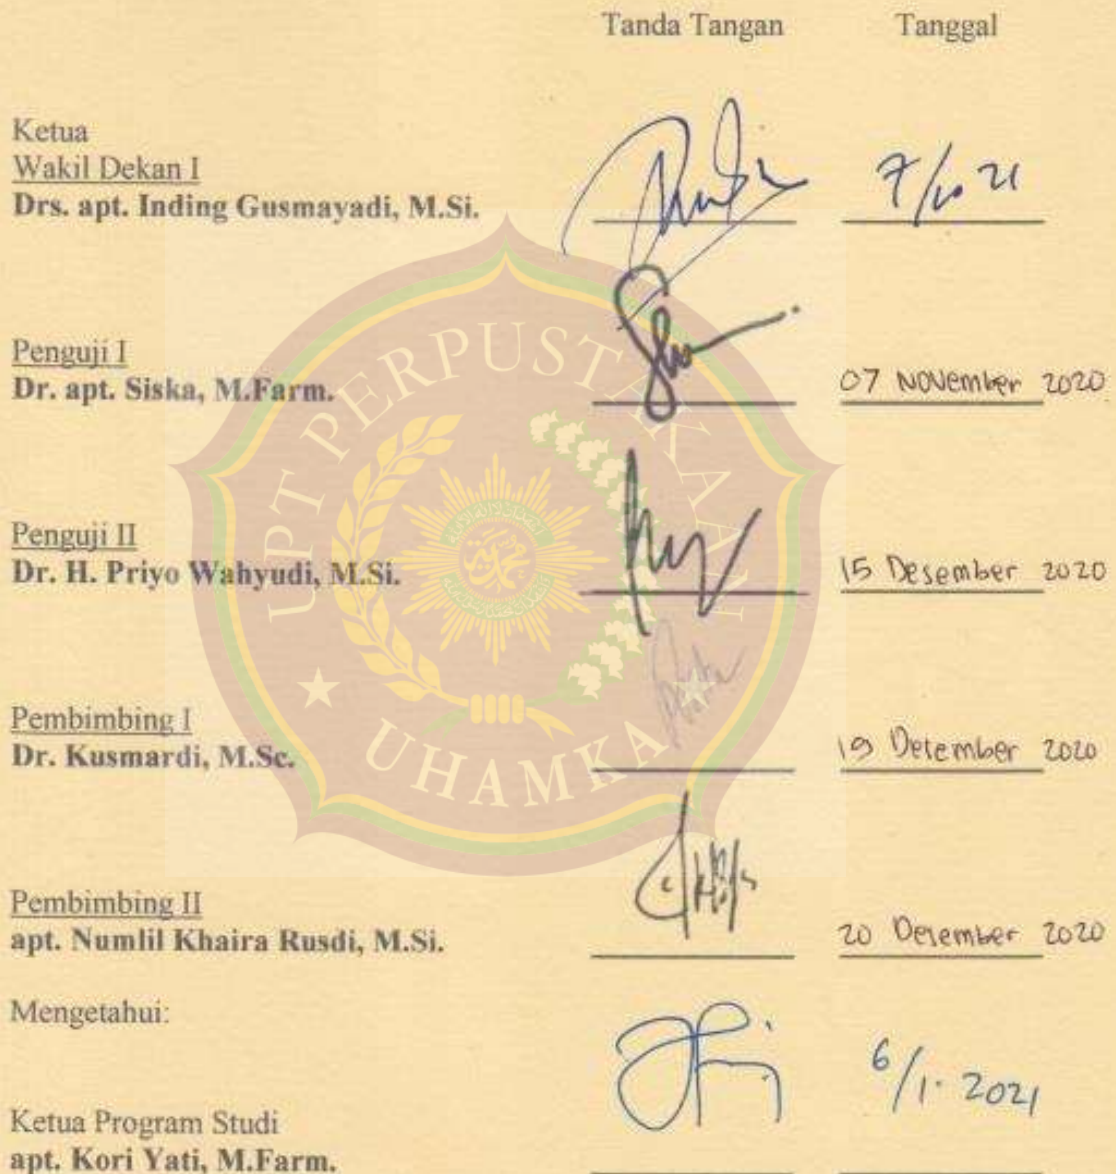 Tanda Tangan Tanggal
Ketua
Wakil Dekan I
Drs. apt. Inding Gusmayadi, M.Si. 7/10 21
Penguji I
Dr. apt. Siska, M.Farm. 07 November 2020
Penguji II
Dr. H. Priyo Wahyudi, M.Si. 15 Desember 2020
Pembimbing I
Dr. Kusmardi, M.Sc. 19 Desember 2020
Pembimbing II
apt. Numlil Khaira Rusdi, M.Si. 20 Desember 2020
Mengetahui:
6/1. 2021
Ketua Program Studi
apt. Kori Yati, M.Farm.
UPT PERPUSTAKAAN
UHAMKA